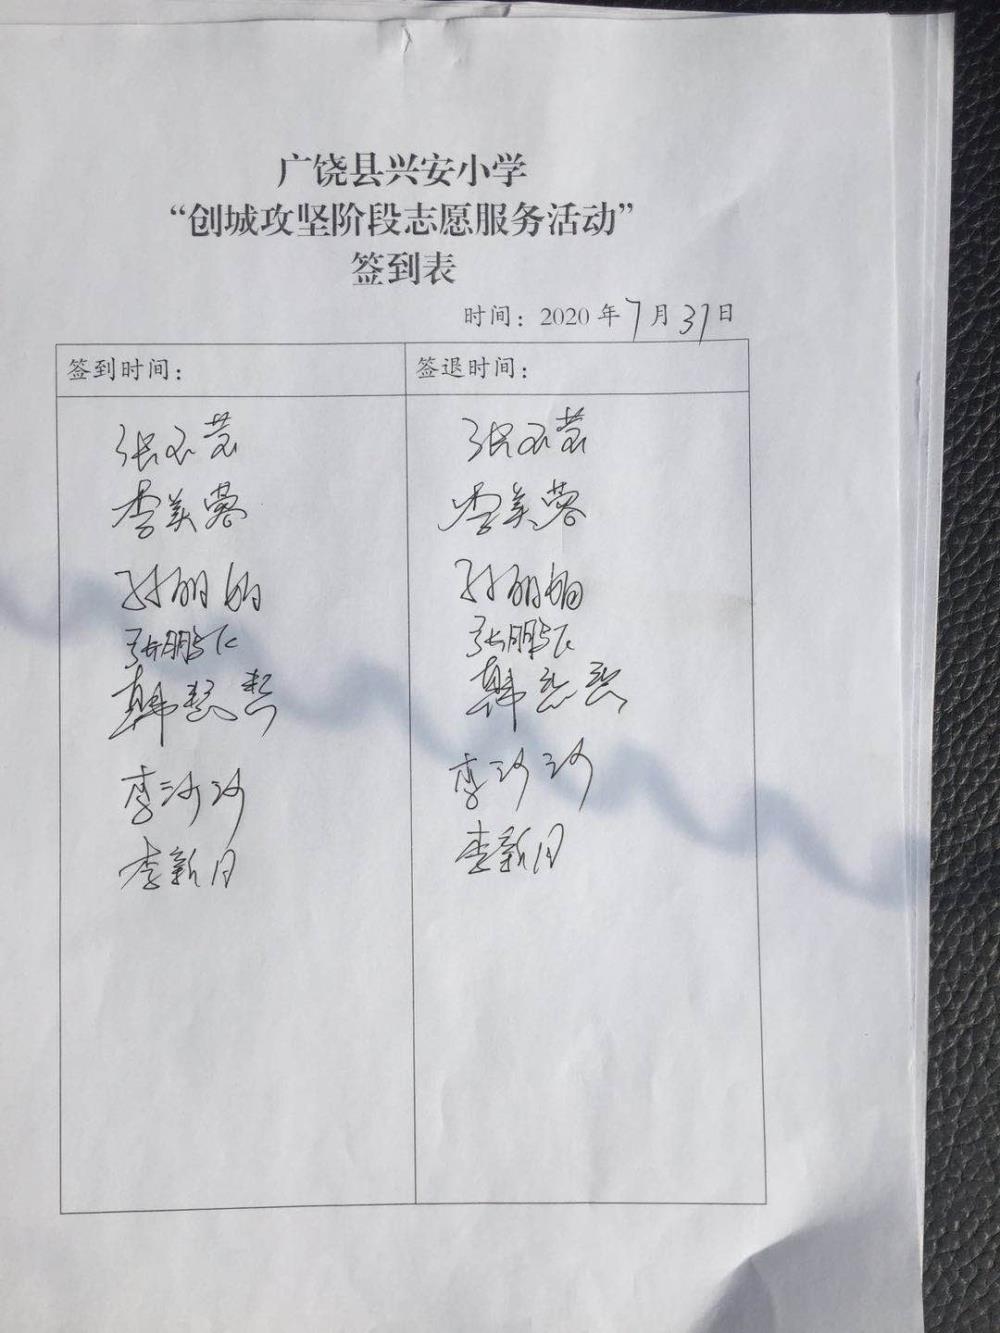 广饶县兴安小学
“创城攻坚阶段志愿服务活动”
签到表
时间：2020年7月31日
签到时间： 签退时间：
张玉芸 张玉芸
李美蓉 李美蓉
孙丽娟 孙丽娟
张鹏飞 张鹏飞
韩慧慧 韩慧慧
李沙沙 李沙沙
李新月 李新月